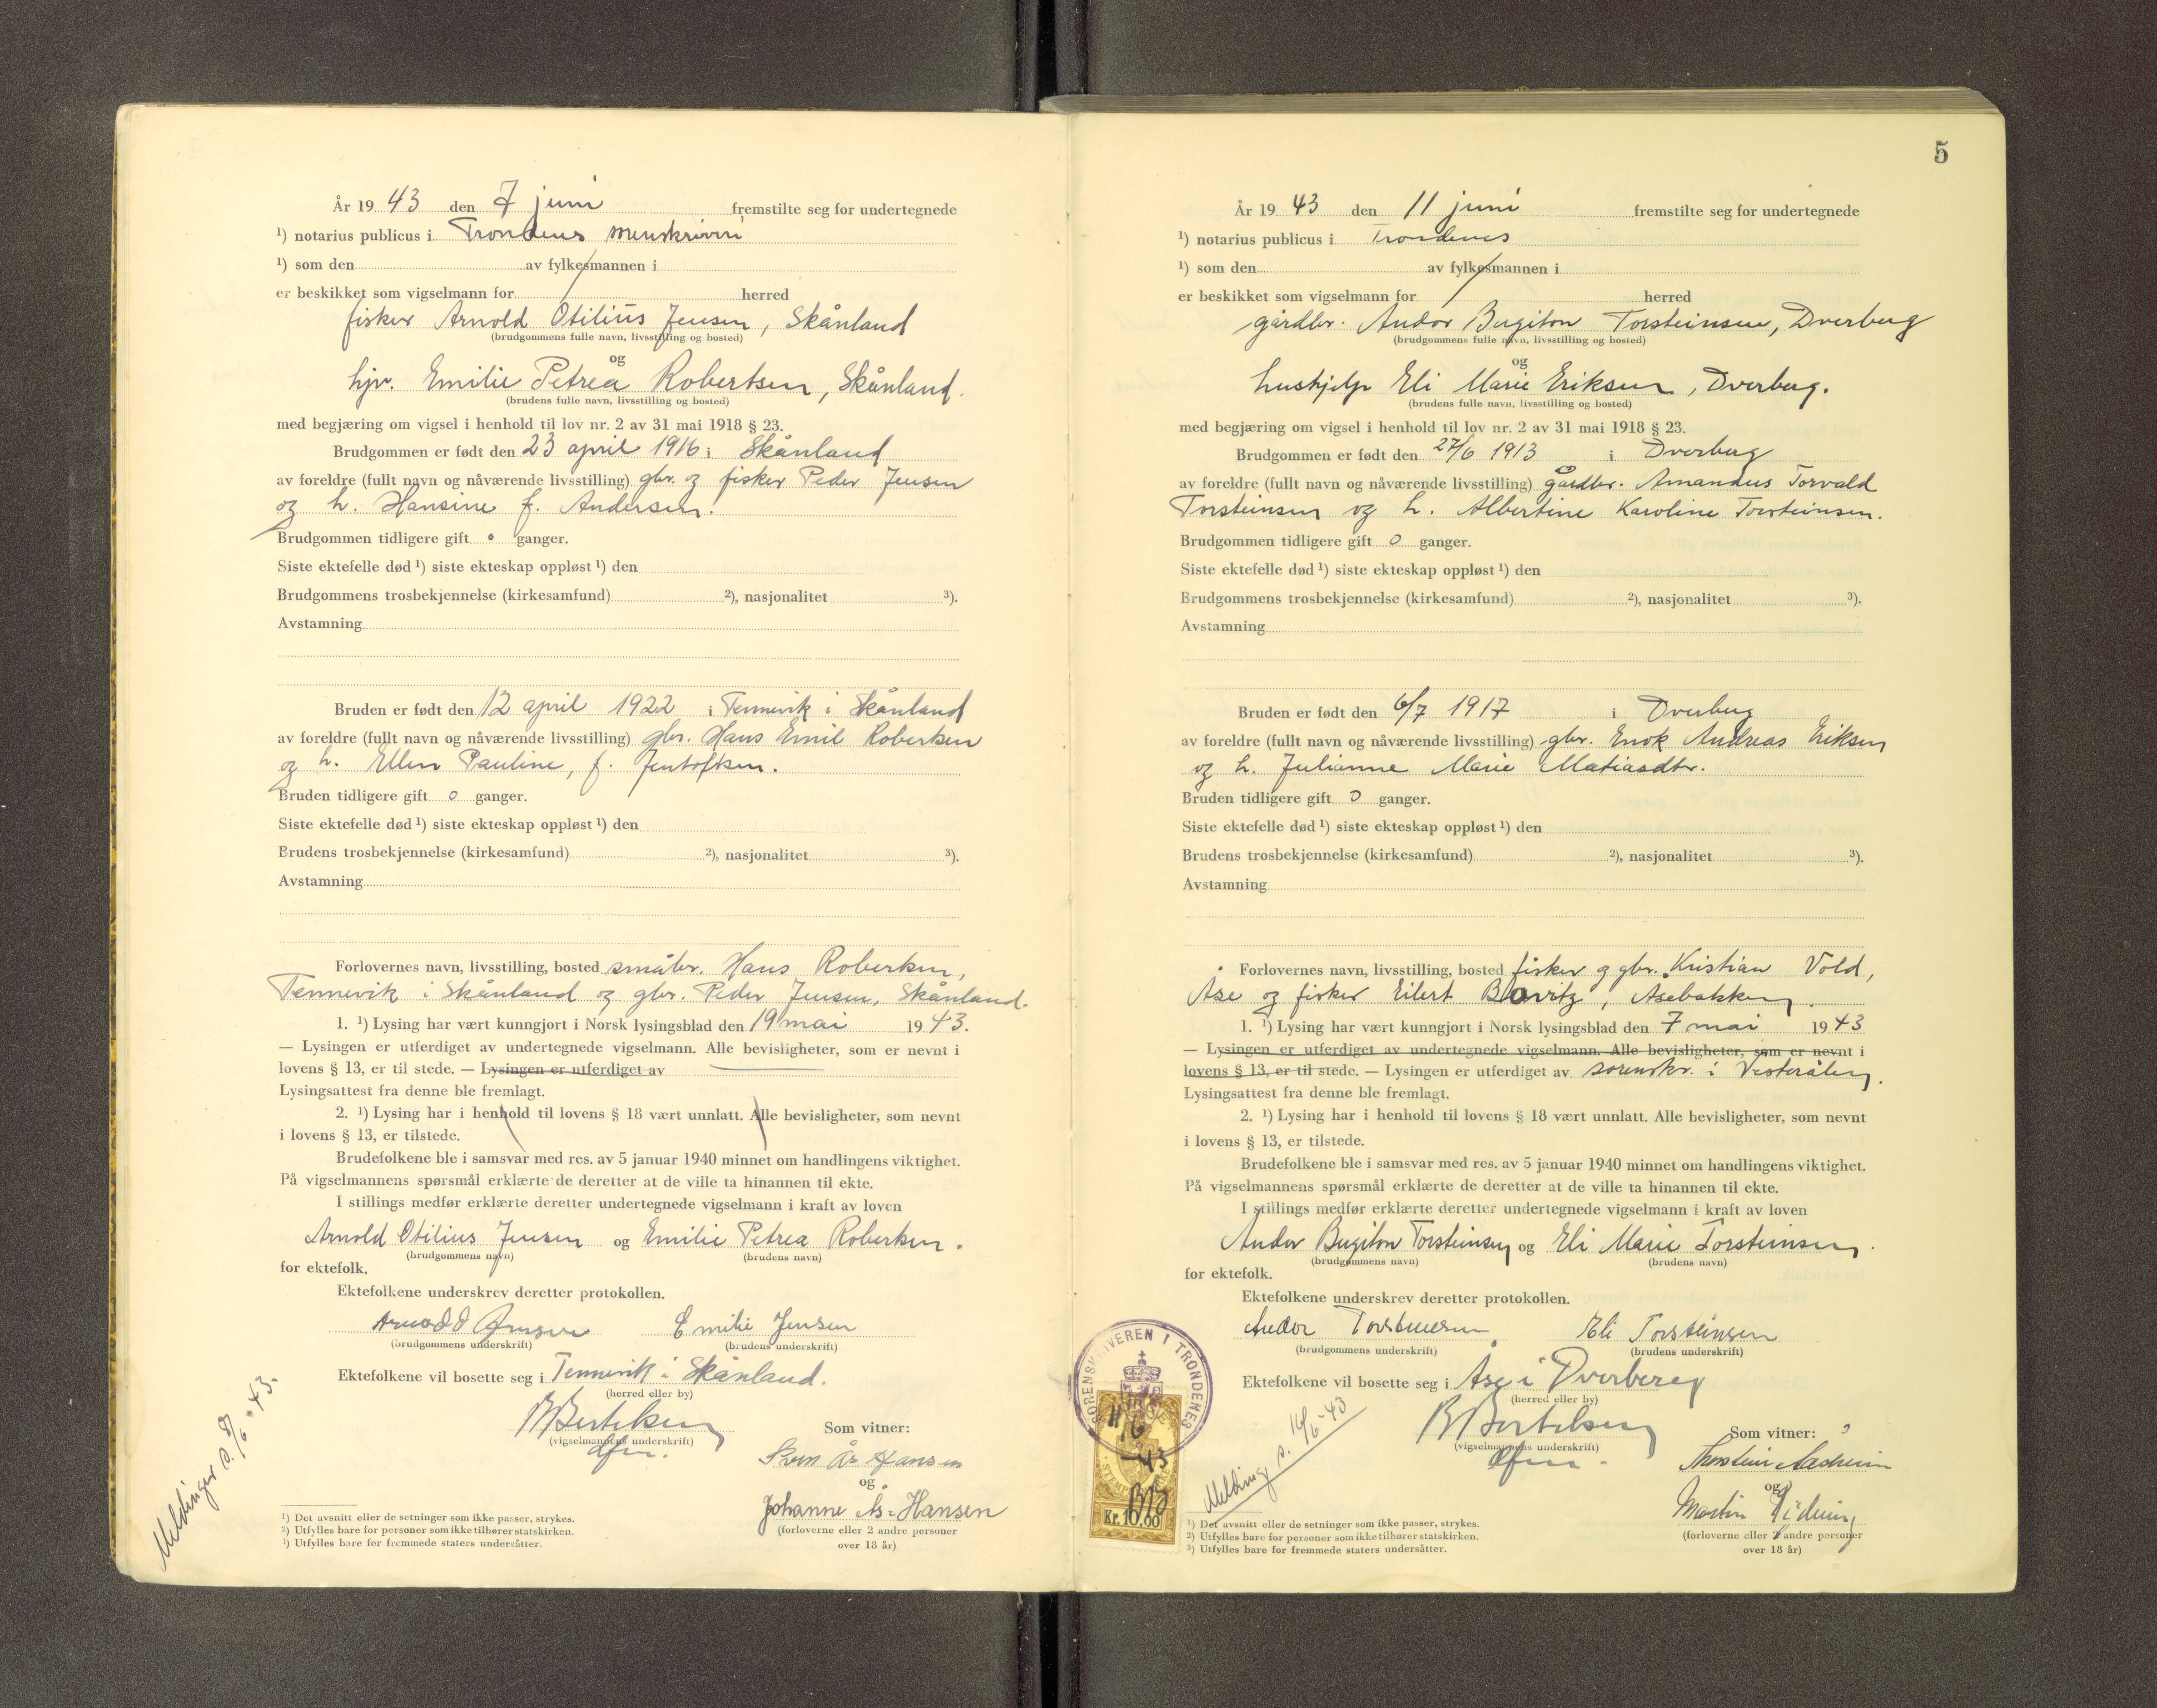 År 19 43 den 7 juni fremstilte seg for undertegnede
¹) notarius publicus i Trondenes sorenskriveri
¹) som den av fylkesmannen i
er beskikket som vigselmann for herred
fisker Arnold Otilius Jensen, Skånland
(brudgommens fulle navn, livsstilling og bosted)
og
hjv. Emilie Petrea Robertsen, Skånland.
(brudens fulle navn, livsstilling og bosted)
med begjæring om vigsel i henhold til lov nr. 2 av 31 mai 1918 § 23.
Brudgommen er født den 23 april 1916 i Skånland
av foreldre (fullt navn og nåværende livsstilling) gbr. og fisker Peder Jensen
og h. Hansine f. Andersen.
Brudgommen tidligere gift 0 ganger.
Siste ektefelle død ¹) siste ekteskap oppløst ¹) den
Brudgommens trosbekjennelse (kirkesamfund) ²), nasjonalitet ³).
Avstamning
Bruden er født den 12 april 1922 i Tennevik i Skånland
av foreldre (fullt navn og nåværende livsstilling) gbr. Hans Emil Robertsen
og h. Ellen Pauline, f. Jentoftsen.
Bruden tidligere gift 0 ganger.
Siste ektefelle død ¹) siste ekteskap oppløst ¹) den
Brudens trosbekjennelse (kirkesamfund) ²), nasjonalitet ³).
Avstamning
Forlovernes navn, livsstilling, bosted småbr. Hans Robertsen,
Tennevik i Skånland og gbr. Peder Jensen, Skånland.
1. ¹) Lysing har vært kunngjort i Norsk lysingsblad den 19 mai 19 43.
— Lysingen er utferdiget av undertegnede vigselmann. Alle bevisligheter, som er nevnt i
lovens § 13, er til stede. — Lysingen er utferdiget av
Lysingsattest fra denne ble fremlagt.
2. ¹) Lysing har i henhold til lovens § 18 vært unnlatt. Alle bevisligheter, som nevnt
i lovens § 13, er tilstede.
Brudefolkene ble i samsvar med res. av 5 januar 1940 minnet om handlingens viktighet.
På vigselmannens spørsmål erklærte de deretter at de ville ta hinannen til ekte.
I stillings medfør erklærte deretter undertegnede vigselmann i kraft av loven
Arnold Otilius Jensen og Emilie Petrea Robertsen.
(brudgommens navn) (brudens navn)
for ektefolk.
Ektefolkene underskrev deretter protokollen.
Arnold Jensen Emilie Jensen
(brudgommens underskrift) (brudens underskrift)
Ektefolkene vil bosette seg i Tennevik i Skånland.
(herred eller by)
B Bertelsen
(vigselmannens underskrift)
Som vitner:
Hansen
og
Johanne Ås-Hansen
(forloverne eller 2 andre personer
over 18 år)
Meldinger s. 8/6-43.
¹) Det avsnitt eller de setninger som ikke passer, strykes.
²) Utfylles bare for personer som ikke tilhører statskirken.
³) Utfylles bare for fremmede staters undersåtter.
5
År 19 43 den 11 juni fremstilte seg for undertegnede
¹) notarius publicus i Trondenes
¹) som den av fylkesmannen i
er beskikket som vigselmann for herred
gårdbr. Andor Birgiton Torsteinsen, Dverberg
(brudgommens fulle navn, livsstilling og bosted)
og
hushjelp Eli Marie Eriksen, Dverberg.
(brudens fulle navn, livsstilling og bosted)
med begjæring om vigsel i henhold til lov nr. 2 av 31 mai 1918 § 23.
Brudgommen er født den 27/6 1913 i Dverberg
av foreldre (fullt navn og nåværende livsstilling) gårdbr. Amandus Torvald
Torsteinsen og h. Albertine Karoline Torsteinsen.
Brudgommen tidligere gift 0 ganger.
Siste ektefelle død ¹) siste ekteskap oppløst ¹) den
Brudgommens trosbekjennelse (kirkesamfund) ²), nasjonalitet ³).
Avstamning
Bruden er født den 6/7 1917 i Dverberg
av foreldre (fullt navn og nåværende livsstilling) gbr. Enok Andreas Eriksen
og h. Julianne Marie Matiasdtr.
Bruden tidligere gift 0 ganger.
Siste ektefelle død ¹) siste ekteskap oppløst ¹) den
Brudens trosbekjennelse (kirkesamfund) ²), nasjonalitet ³).
Avstamning
Forlovernes navn, livsstilling, bosted fisker og gbr. Kristian Vold,
Åse og fisker Eilert Åsebakken.
1. ¹) Lysing har vært kunngjort i Norsk lysingsblad den 7 mai 19 43
— Lysingen er utferdiget av undertegnede vigselmann. Alle bevisligheter, som er nevnt i
lovens § 13, er til stede. — Lysingen er utferdiget av sorenskr. i Vesterålen.
Lysingsattest fra denne ble fremlagt.
2. ¹) Lysing har i henhold til lovens § 18 vært unnlatt. Alle bevisligheter, som nevnt
i lovens § 13, er tilstede.
Brudefolkene ble i samsvar med res. av 5 januar 1940 minnet om handlingens viktighet.
På vigselmannens spørsmål erklærte de deretter at de ville ta hinannen til ekte.
I stillings medfør erklærte deretter undertegnede vigselmann i kraft av loven
Andor Birgiton Torsteinsen og Eli Marie Torsteinsen.
(brudgommens navn) (brudens navn)
for ektefolk.
Ektefolkene underskrev deretter protokollen.
Andor Torsteinsen Eli Torsteinsen
(brudgommens underskrift) (brudens underskrift)
Ektefolkene vil bosette seg i Åse i Dverberg
(herred eller by)
B Bertelsen
(vigselmannens underskrift)
Som vitner:
Thorstein Aasheim
og
Martin
(forloverne eller 2 andre personer
over 18 år)
SORENSKRIVEREN I TRONDENES
11/6 -43
BB
Kr. 10.00
Melding s. 16/6-43
¹) Det avsnitt eller de setninger som ikke passer, strykes.
²) Utfylles bare for personer som ikke tilhører statskirken.
³) Utfylles bare for fremmede staters undersåtter.